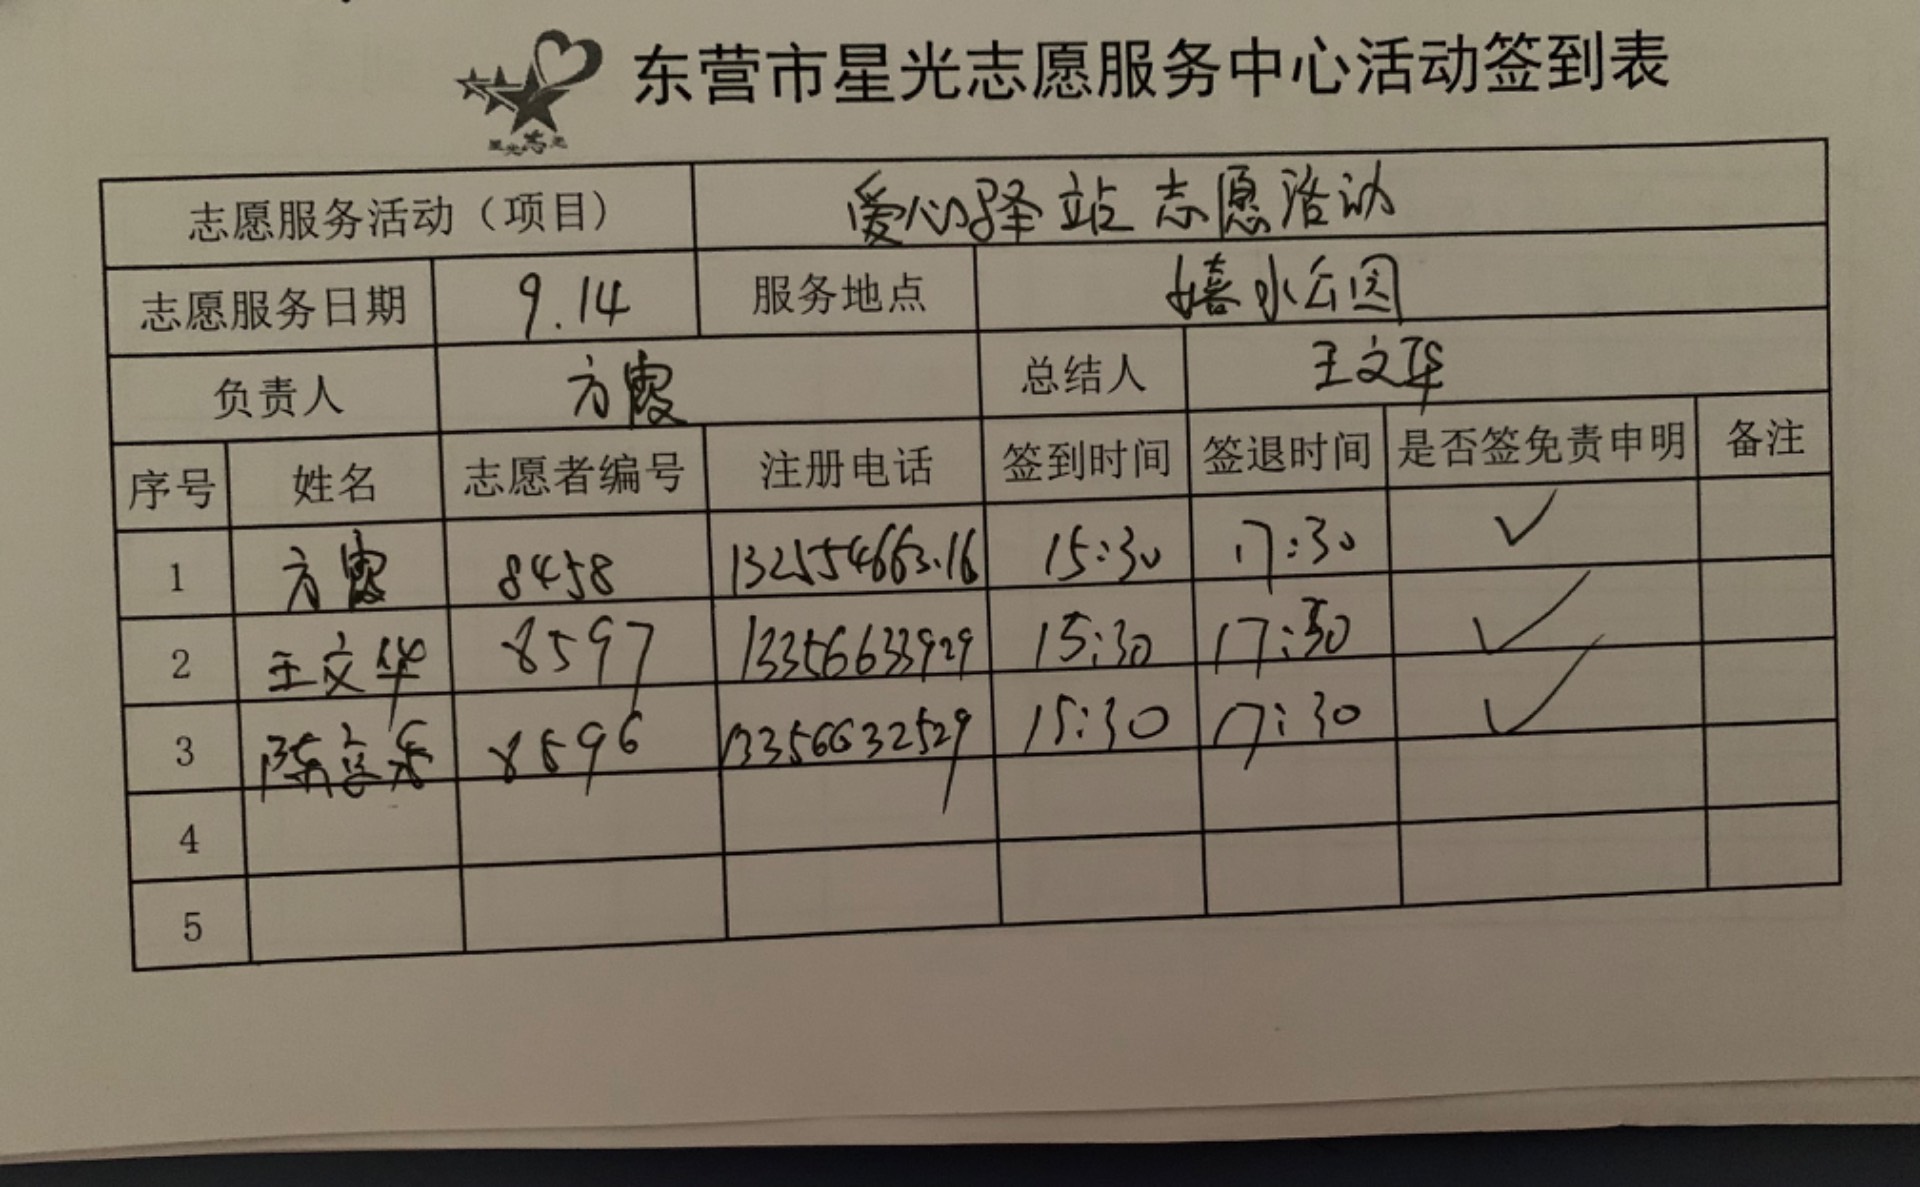 东营市星光志愿服务中心活动签到表
星光志愿
志愿服务活动（项目） 爱心驿站志愿活动
志愿服务日期 9.14 服务地点 嬉水公园
负责人 方霞 总结人 王文华
序号 姓名 志愿者编号 注册电话 签到时间 签退时间 是否签免责申明 备注
1 方霞 8458 13255466316 15:30 17:30 ✓
2 王文华 8597 13356633929 15:30 17:30 ✓
3 陈 8596 13356632529 15:30 17:30 ✓
4
5